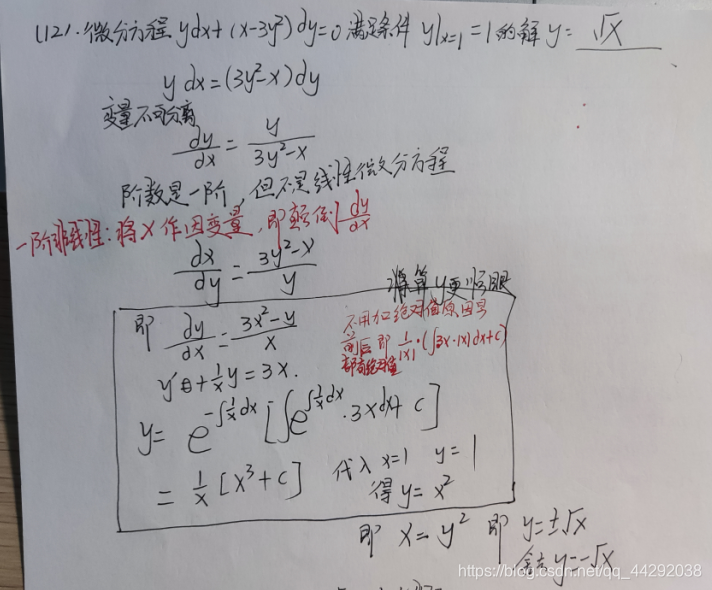 (12).微分方程 ydx+(x-3y²)dy=0 满足条件 y|x=1 =1的解 y= √x
y dx=(3y²-x)dy
变量不可分离
dy/dx = y/(3y²-x)
阶数是一阶，但不是线性微分方程
一阶非线性：将X作因变量，即颠倒 dy/dx
dx/dy = (3y²-x)/y
算y更顺眼
即 dy/dx = (3x²-y)/x
不用加绝对值原因是
前后 即 1/|x|·(∫3x·|x|dx+c)
都有绝对值
y'+1/x y=3x.
y= e^(-∫1/x dx) [∫e^(∫1/x dx)·3xdx+ c]
= 1/x [x³+c] 代入 x=1 y=1
得 y= x²
即 x= y² 即 y=±√x
舍去 y=-√x
https://blog.csdn.net/qq_44292038